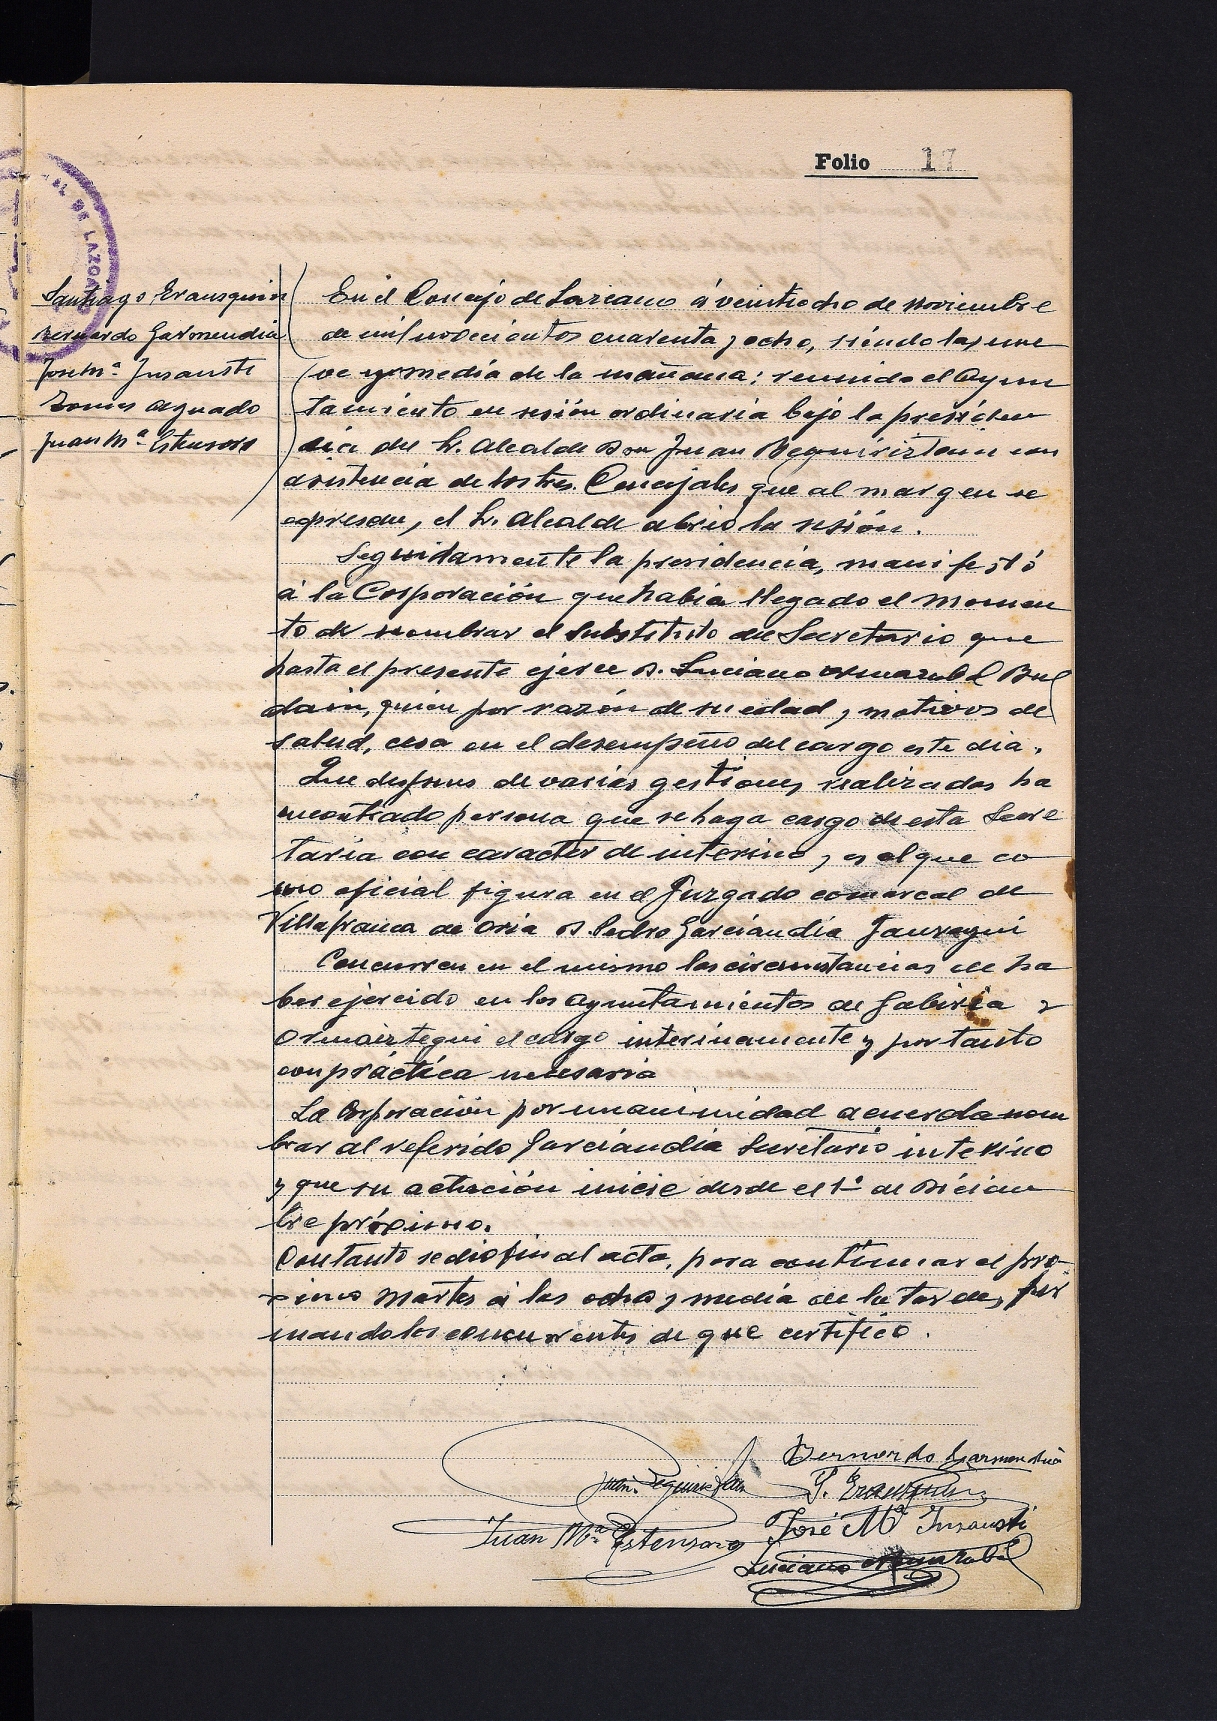 Folio 17
AL DE LAZCA
Santiago Erausquin
Bernardo Garmendia
José Mª Insausti
Tomas Aguado
Juan Mª Estensoro
En el Concejo de Lazcano á veintiocho de noviembre
de mil novecientos cuarenta y ocho, siendo las nue
ve y media de la mañana; reunido el Ayun
tamiento en sesión ordinaria bajo la presiden
cia del Sr. Alcalde Don Juan Beguiristain con
asistencia de los Sres. Concejales que al margen se
expresan, el Sr. Alcalde abrió la sesión.
Seguidamente la presidencia, manifestó
á la Corporación que había llegado el momen
to de nombrar el substituto del Secretario que
hasta el presente ejerce D. Luciano Armazabal Bal
dain, quien por razón de su edad y motivos de
salud, cesa en el desempeño del cargo este dia.
Que despues de varias gestiones realizadas ha
encontrado persona que se haga cargo de esta Secre
taria con caracter de interino, y es el que co
mo oficial figura en el Juzgado comarcal de
Villafranca de Oria D. Pedro Garciandia Jauregui
Concurren en el mismo las circunstancias de ha
ber ejercido en los Ayuntamientos de Gabiria y
Ormaiztegui el cargo interinamente y por tanto
con práctica necesaria
La Corporación por unanimidad acuerda nom
brar al referido Garciandia Secretario interino
y que su actuación inicie desde el 1º de Diciem
bre próximo.
Con tanto se dio fin al acto, para continuar el pro-
ximo martes á las ocho y media de la tarde, fir
mando los concurrentes de que certifico.
Bernardo Garmendia
Juan Beguiristain S. Erausquin
Juan Mª Estensoro José Mª Insausti
Luciano Armazabal